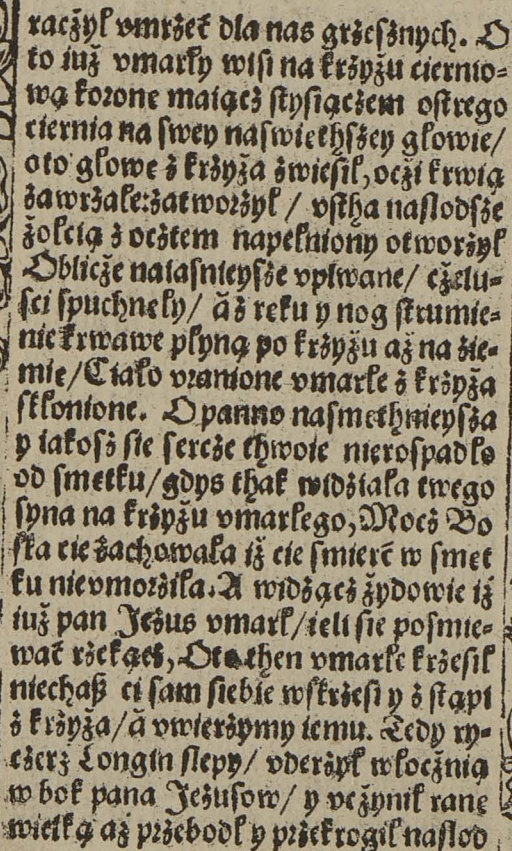 racżył vmrzeć dla nas grzesznych. O
to iuż vmarły wisi na krzyżu ciernio⸗
wą korone maiącz stysiączem ostrego
ciernia na swey naswiethszey głowie/
oto głowe z krzyża zwiesił, oczi krwią
zawrzałe: zatworzył / vstha nasłodsze
żołcią z ocztem napełniony otworzył
Oblicże naiasnieysze vplwane/ cżelu⸗
sci spuchneły/ áz reku y nog strumie⸗
nie krwawe płyną po krzyżu aż na zie⸗
mie/ Ciało vranione vmarłe z krzyża
skłonione. O panno nasmethnieysza
y iakosz sie sercze thwoie nierospadło
od smetku/ gdys thak widziała twego
syna na krzyżu vmarłego, Mocz Bo
ska cie zachowała iż cie smierć w smet
ku nievmorziła. A widzącz żydowie iż
iuż pan Jezus vmarł/ ieli sie posmie⸗
wać rzekącz, Oto then vmarłe krzesił
niechaß ci sam siebie wskrzesi y z stąpi
z krzyża/ á vwierzymy iemu. Tedy ry⸗
czerz Longin slepy/ vderzył włocżnią
w bok pana Jezusow/ y vcżynił rane
wielką aż przebodł y przekrogił nasłod